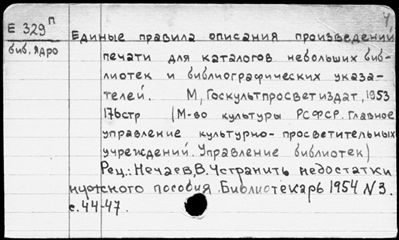 Е 329п
Единые правила описания произведений
библ. ядро
печати для каталогов небольших биб-
лиотек и библиографических указа-
телей. М, Госкультпросветиздат, 1953
176стр (М-во культуры РСФСР. Главное
управление культурно-просветительных
учреждений. Управление библиотек)
Рец.: Нечаев,В. Устранить недостатки
нужного пособия. Библиотекарь 1954 N3.
с.44-47.